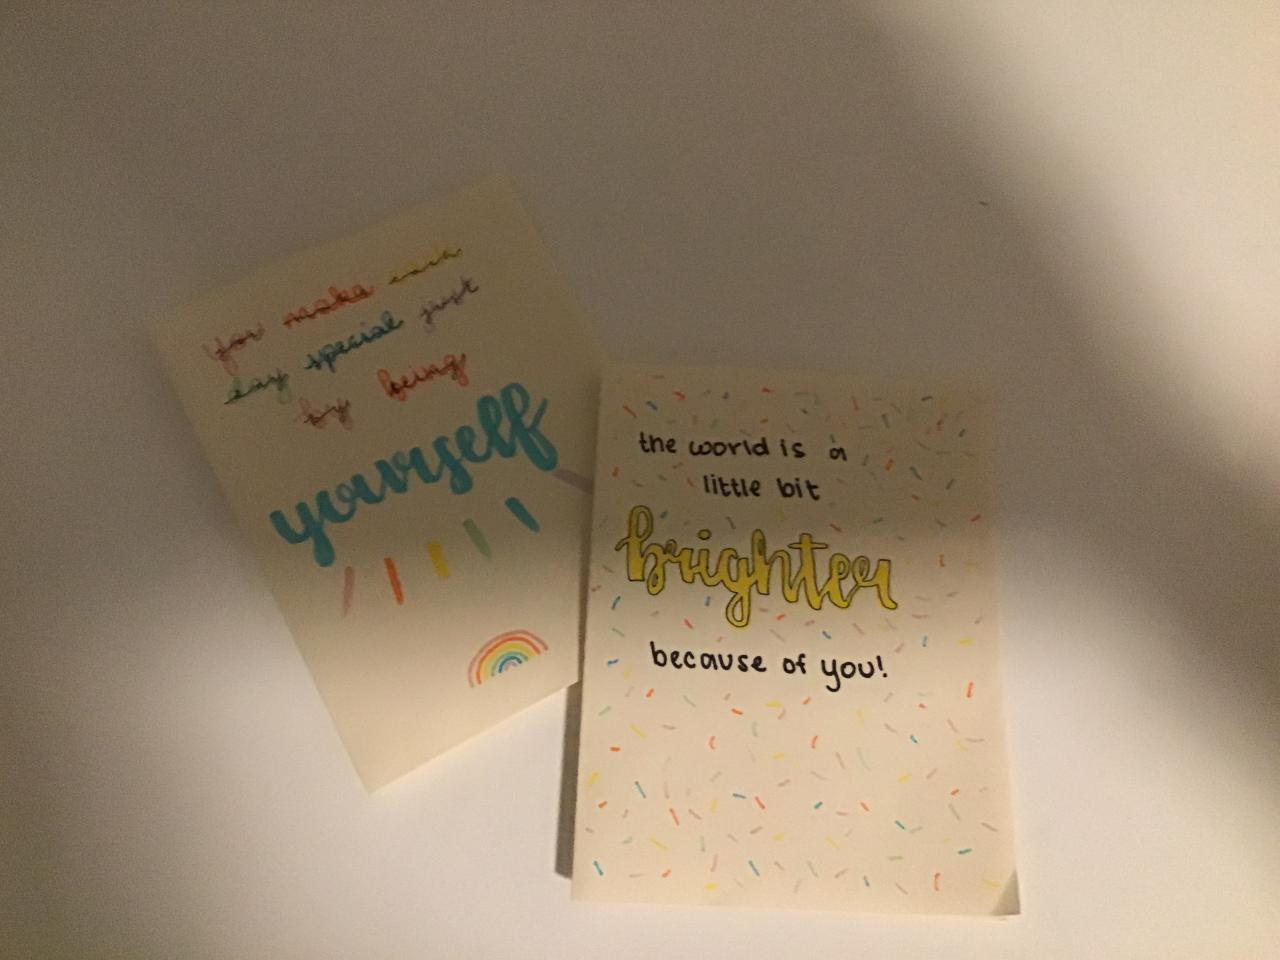 you make each
day special just
by being
yourself
the world is a
little bit
brighter
because of you!